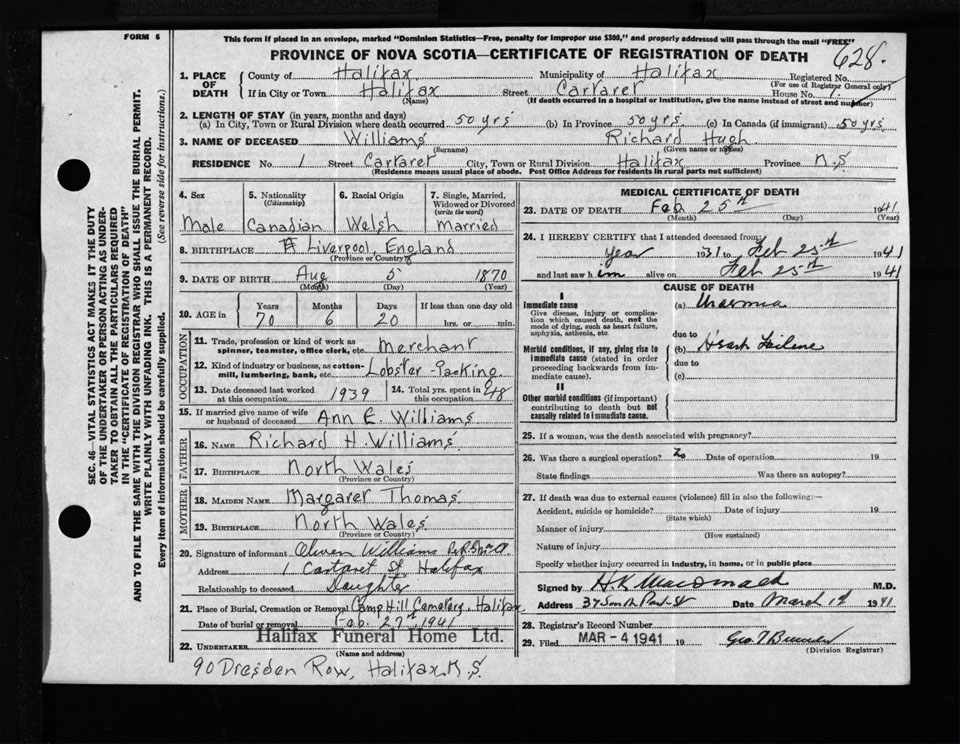 FORM 6
This form if placed in an envelope, marked "Dominion Statistics—Free, penalty for improper use $300," and properly addressed will pass through the mail "FREE"
PROVINCE OF NOVA SCOTIA—CERTIFICATE OF REGISTRATION OF DEATH
628.
1. PLACE OF DEATH
County of Halifax Municipality of Halifax Registered No.
(For use of Registrar General only)
If in City or Town Halifax Street Cartaret House No. 1.
(Name) (If death occurred in a hospital or institution, give the name instead of street and number)
2. LENGTH OF STAY (in years, months and days)
(a) In City, Town or Rural Division where death occurred 50 yrs (b) In Province 50 yrs. (c) In Canada (if immigrant) 50 yrs
3. NAME OF DECEASED Williams Richard Hugh
(Surname) (Given name or names)
RESIDENCE No. 1 Street Cartaret City, Town or Rural Division Halifax Province N.S
(Residence means usual place of abode. Post Office Address for residents in rural parts not sufficient)
4. Sex
Male
5. Nationality
(Citizenship)
Canadian
6. Racial Origin
Welsh
7. Single, Married, Widowed or Divorced
(write the word)
Married
8. BIRTHPLACE Liverpool, England
(Province or Country)
9. DATE OF BIRTH Aug 5 1870
(Month) (Day) (Year)
10. AGE in
Years Months Days If less than one day old
70 6 20 hrs. or min.
OCCUPATION
11. Trade, profession or kind of work as spinner, teamster, office clerk, etc. Merchant
12. Kind of industry or business, as cotton-mill, lumbering, bank, etc. Lobster-Packing
13. Date deceased last worked at this occupation 1939 14. Total yrs. spent in 48
15. If married give name of wife or husband of deceased Ann E. Williams
FATHER
16. NAME Richard H. Williams
17. BIRTHPLACE North Wales
(Province or Country)
MOTHER
18. MAIDEN NAME Margaret Thomas
19. BIRTHPLACE North Wales
(Province or Country)
20. Signature of informant Olwen Williams
Address 1 Cartaret St Halifax
Relationship to deceased Daughter
21. Place of Burial, Cremation or Removal Camp Hill Cemetery, Halifax
Date of burial or removal Feb. 27th, 1941
Halifax Funeral Home Ltd.
22. UNDERTAKER
(Name and address)
90 Dresden Row, Halifax N.S.
MEDICAL CERTIFICATE OF DEATH
23. DATE OF DEATH Feb 25th 1941
(Month) (Day) (Year)
24. I HEREBY CERTIFY that I attended deceased from:
year 1931 to Feb 25th 1941
and last saw him alive on Feb 25th 1941
CAUSE OF DEATH
I
Immediate cause
Give disease, injury or complication which caused death, not the mode of dying, such as heart failure, asphyxia, asthenia, etc.
(a) Uraemia
due to
Morbid conditions, if any, giving rise to immediate cause (stated in order proceeding backwards from immediate cause).
(b) Heart Failure
due to
(c)
II
Other morbid conditions (if important) contributing to death but not causally related to immediate cause.
25. If a woman, was the death associated with pregnancy?
26. Was there a surgical operation? No Date of operation 19
State findings Was there an autopsy?
27. If death was due to external causes (violence) fill in also the following:—
Accident, suicide or homicide? Date of injury 19
(State which)
Manner of injury
(How sustained)
Nature of injury
Specify whether injury occurred in industry, in home, or in public place
Signed by H.K. MacDonald M.D.
Address Park St Date March 1st 1941
28. Registrar's Record Number
29. Filed MAR - 4 1941 19
(Division Registrar)
SEC. 46—VITAL STATISTICS ACT MAKES IT THE DUTY
OF THE UNDERTAKER OR PERSON ACTING AS UNDER-
TAKER TO OBTAIN ALL THE PARTICULARS REQUIRED
IN THE "CERTIFICATE OF REGISTRATION OF DEATH"
AND TO FILE THE SAME WITH THE DIVISION REGISTRAR WHO SHALL ISSUE THE BURIAL PERMIT.
WRITE PLAINLY WITH UNFADING INK. THIS IS A PERMANENT RECORD.
Every item of information should be carefully supplied. (See reverse side for instructions.)